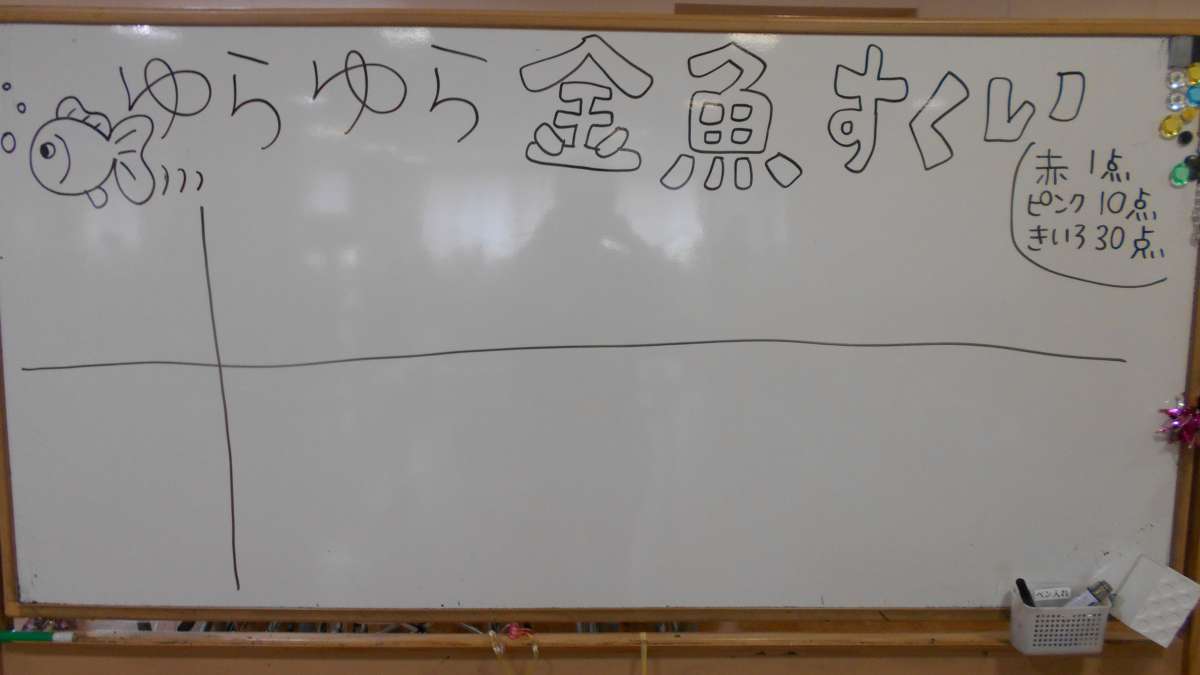 ゆらゆら金魚すくい
赤 1点
ピンク 10点
きいろ 30点
ペン入れ